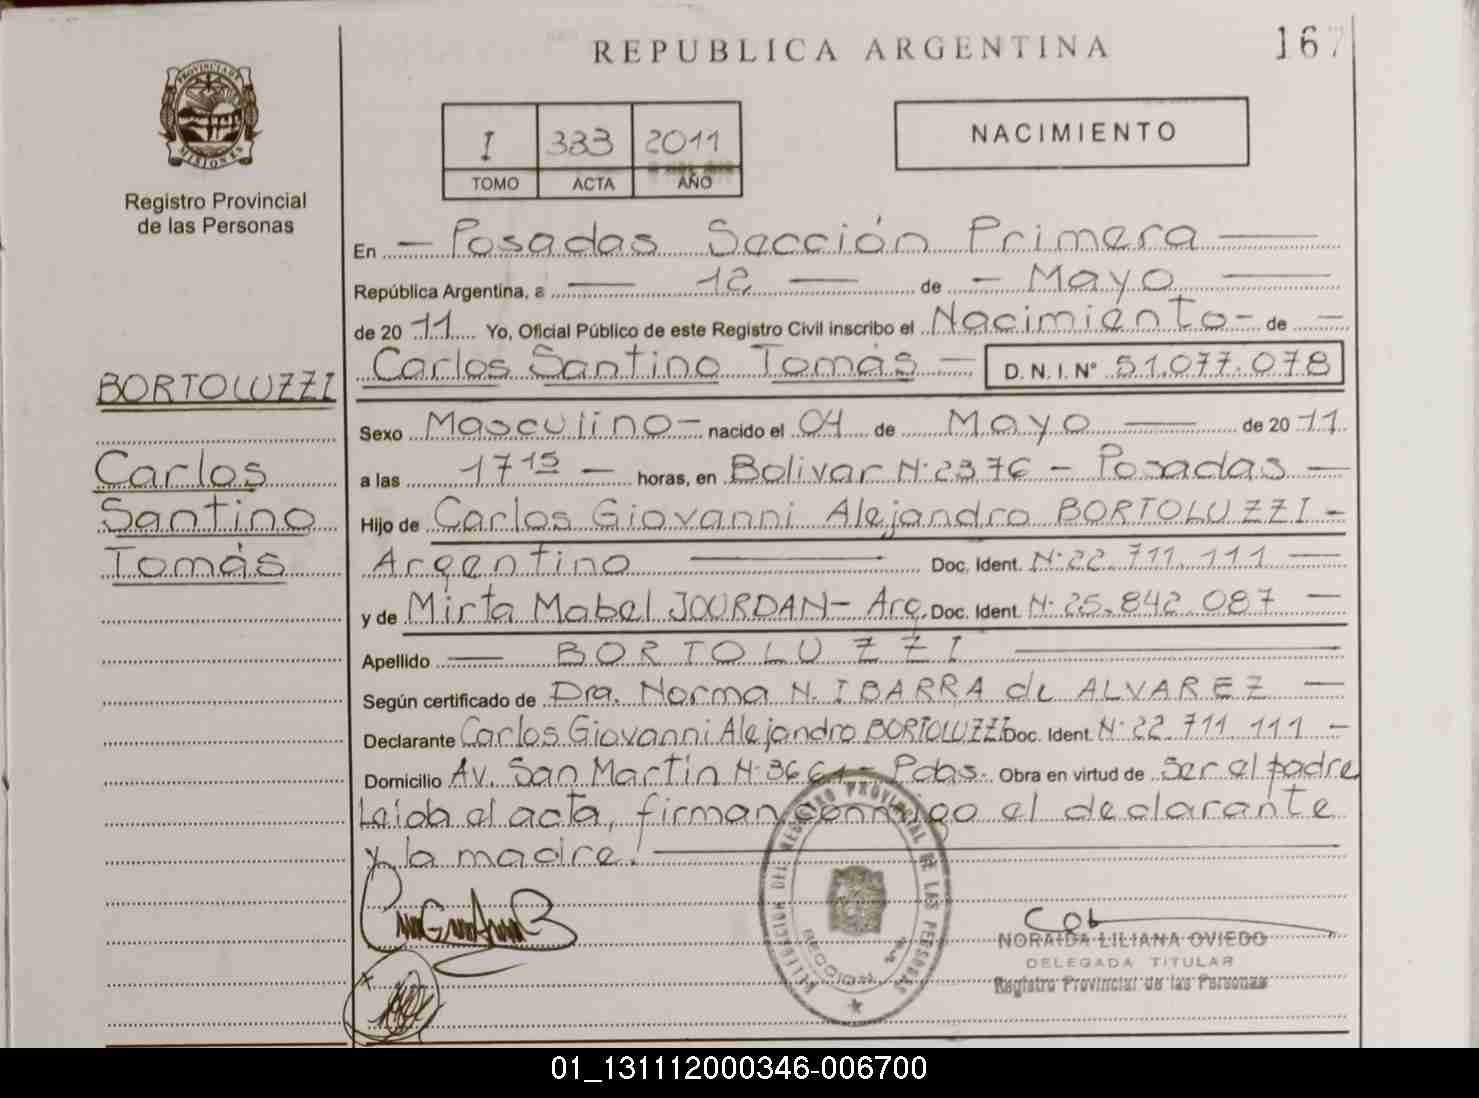 REPUBLICA ARGENTINA
167
PROVINCIA DE
MISIONES
Registro Provincial
de las Personas
I 383 2011
TOMO ACTA AÑO
NACIMIENTO
En - Posadas Sección Primera
República Argentina, a 12 de - Mayo
de 20 11 Yo, Oficial Público de este Registro Civil inscribo el Nacimiento - de -
Carlos Santino Tomás - D.N.I. N° 51.077.078
BORTOLUZZI
Carlos
Santino
Tomás
Sexo Masculino - nacido el 04 de Mayo de 20 11
a las 17 15 - horas, en Bolivar N: 2376 - Posadas -
Hijo de Carlos Giovanni Alejandro BORTOLUZZI -
Argentino Doc. Ident. N: 22.711.111
y de Mirta Mabel JOURDAN - Arg. Doc. Ident. N: 25.842.087 -
Apellido - BORTOLUZZI
Según certificado de Dra. Norma N. IBARRA de ALVAREZ -
Declarante Carlos Giovanni Alejandro BORTOLUZZI Doc. Ident. N: 22.711.111 -
Domicilio Av. San Martin N: 3661 - Pdas. Obra en virtud de Ser el padre
Leída el acta, firman conmigo el declarante
y la madre!
DELEGACION DEL REGISTRO PROVINCIAL DE LAS PERSONAS
SECCION 1ra
NORAIDA LILIANA OVIEDO
DELEGADA TITULAR
Registro Provincial de las Personas
01_131112000346-006700